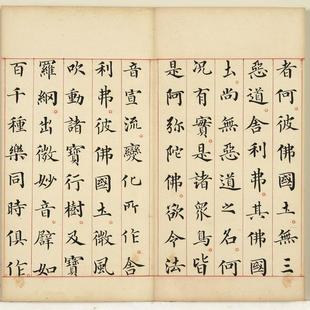 者何彼佛國土無三
惡道舍利弗其佛國
土尚無惡道之名何
况有實是諸衆鳥皆
是阿弥陀佛欲令法
音宣流變化所作舍
利弗彼佛國土微風
吹動諸寶行樹及寶
羅網出微妙音譬如
百千種樂同時俱作